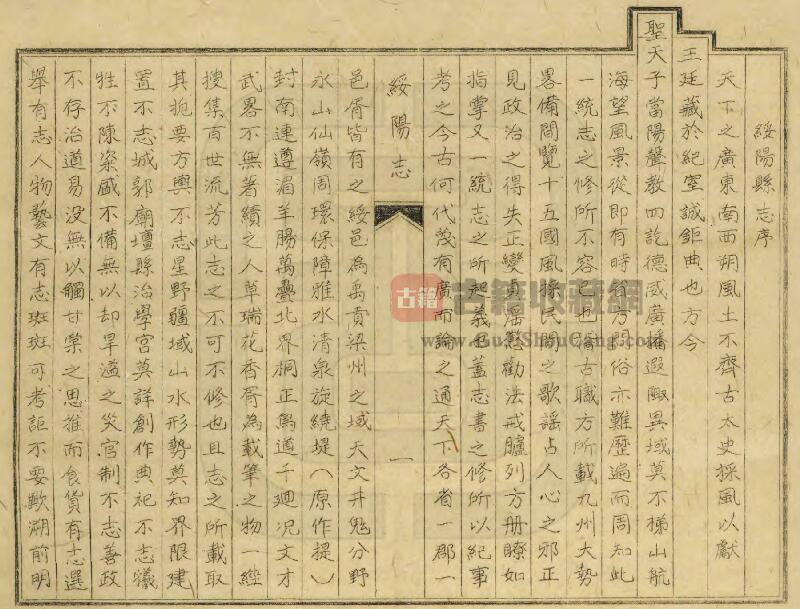 綏陽縣志序
天下之廣東南西朔風土不齊古太史採風以獻
王廷藏於紀室誠鉅典也方今
聖天子當陽聲教四訖德威廣播遐陬異域莫不梯山航
海望風景從即有時省方問俗亦難歷遍而周知此
一統志之修所不容已也稽古職方所載九州大勢
畧備間覽十五國風採民間之歌謠占人心之邪正
見政治之得失正變貞淫懲勸法戒臚列方册瞭如
指掌又一統志之所起義也蓋志書之修所以紀事
考之今古何代蔑有廣而論之通天下各省一郡一
綏陽志
一
邑胥皆有之綏邑為禹貢梁州之域天文井鬼分野
水山仙嶺周環保障雅水清泉旋繞堤(原作提)
封南連遵湄羊腸萬疊北界桐正鳥道千廻况文才
武畧不無著績之人草瑞花香胥為載筆之物一經
搜集百世流芳此志之不可不修也且志之所載取
其扼要方輿不志星野疆域山水形勢奠知界限建
置不志城郭廟壇縣治學宮奠詳創作典祀不志犧
牲不陳粢盛不備無以却旱溢之災官制不志善政
不存治道易没無以觸甘棠之思推而食貨有志選
舉有志人物藝文有志斑斑可考詎不要歟溯前明
古籍
古籍收藏網
www.GuJiShouCang.com